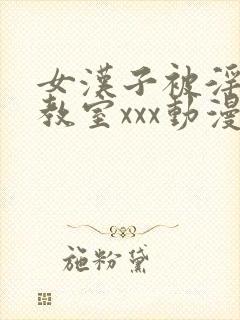 女漢子被淫
教室xxx動漫
施粉黛